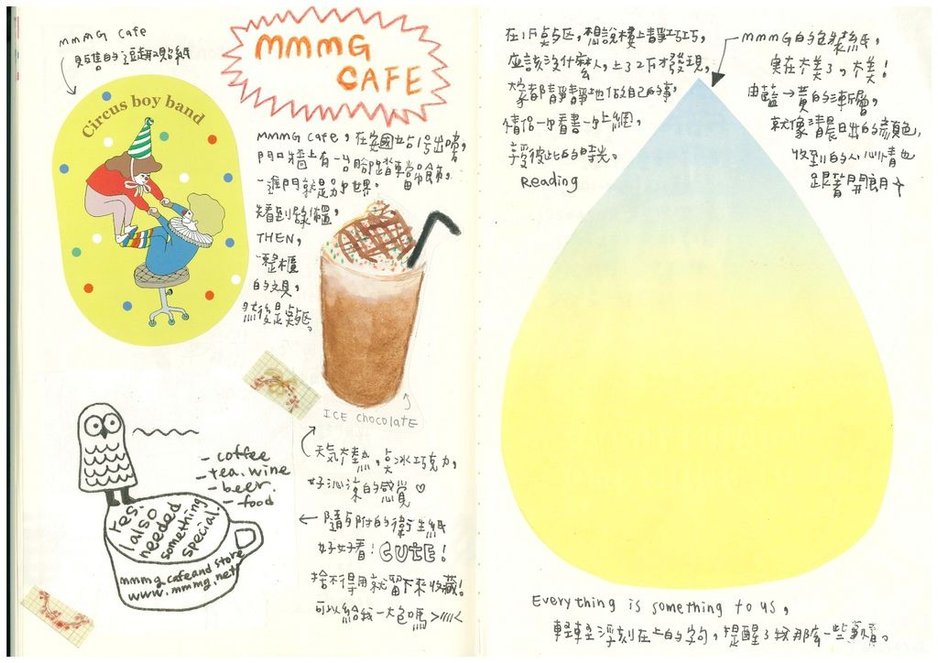 mmmG Cafe
販售的逗趣貼紙
Circus boy band
MMMG
CAFE
mmmG cafe,在安國站1号出口唷,
門口牆上有一台腳踏車當裝飾,
一進門就是另世界。
先看到綠櫃,
THEN,
一整櫃
的文具,
然後是点区。
ICE chocolate
天氣太熱,点冰巧克力,
好沁涼的感覺♡
隨餐附的衛生紙
好好看!CUTE!
捨不得用就留下來收藏!
可以給我一大包嗎 >////<
- coffee
- tea. wine
- beer.
- food
Yes.
I also
needed
something
special.
mmmg cafe and store
www.mmmg.net
在1F点区,想說樓上靜巧巧,
應該沒什麼人,上了2F才發現,
大家都靜靜地做自己的事,
情侶一中看書一中上網,
享彼此的時光。
Reading
mmmG的包裝紙,
實在太美了,太美!
由藍→黃的漸層,
就像清晨日出的顏色,
收到的人心情也
跟著開朗↑
Everything is something to us,
輕輕浮刻在上的字句,提醒了我那麼一些事情。